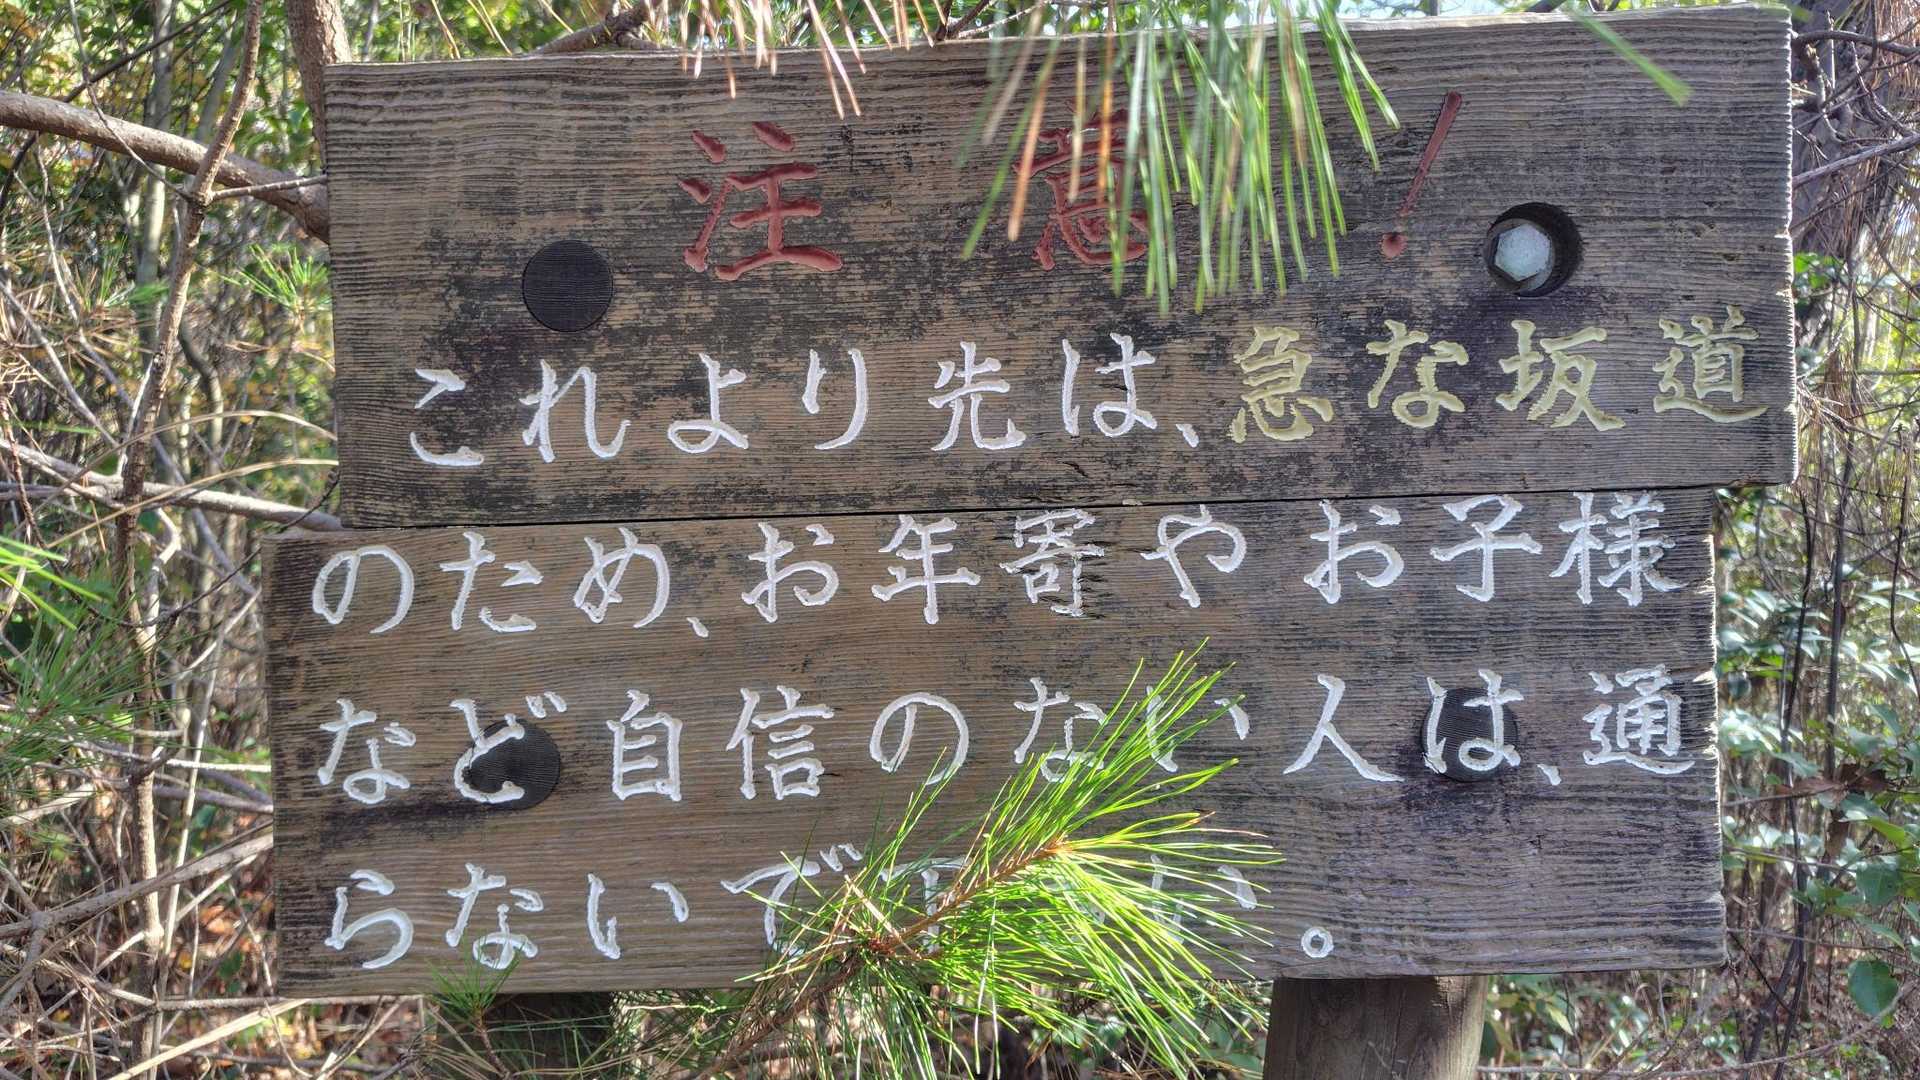 注意!
これより先は、急な坂道
のため、お年寄やお子様
など自信のない人は、通
らないで い。